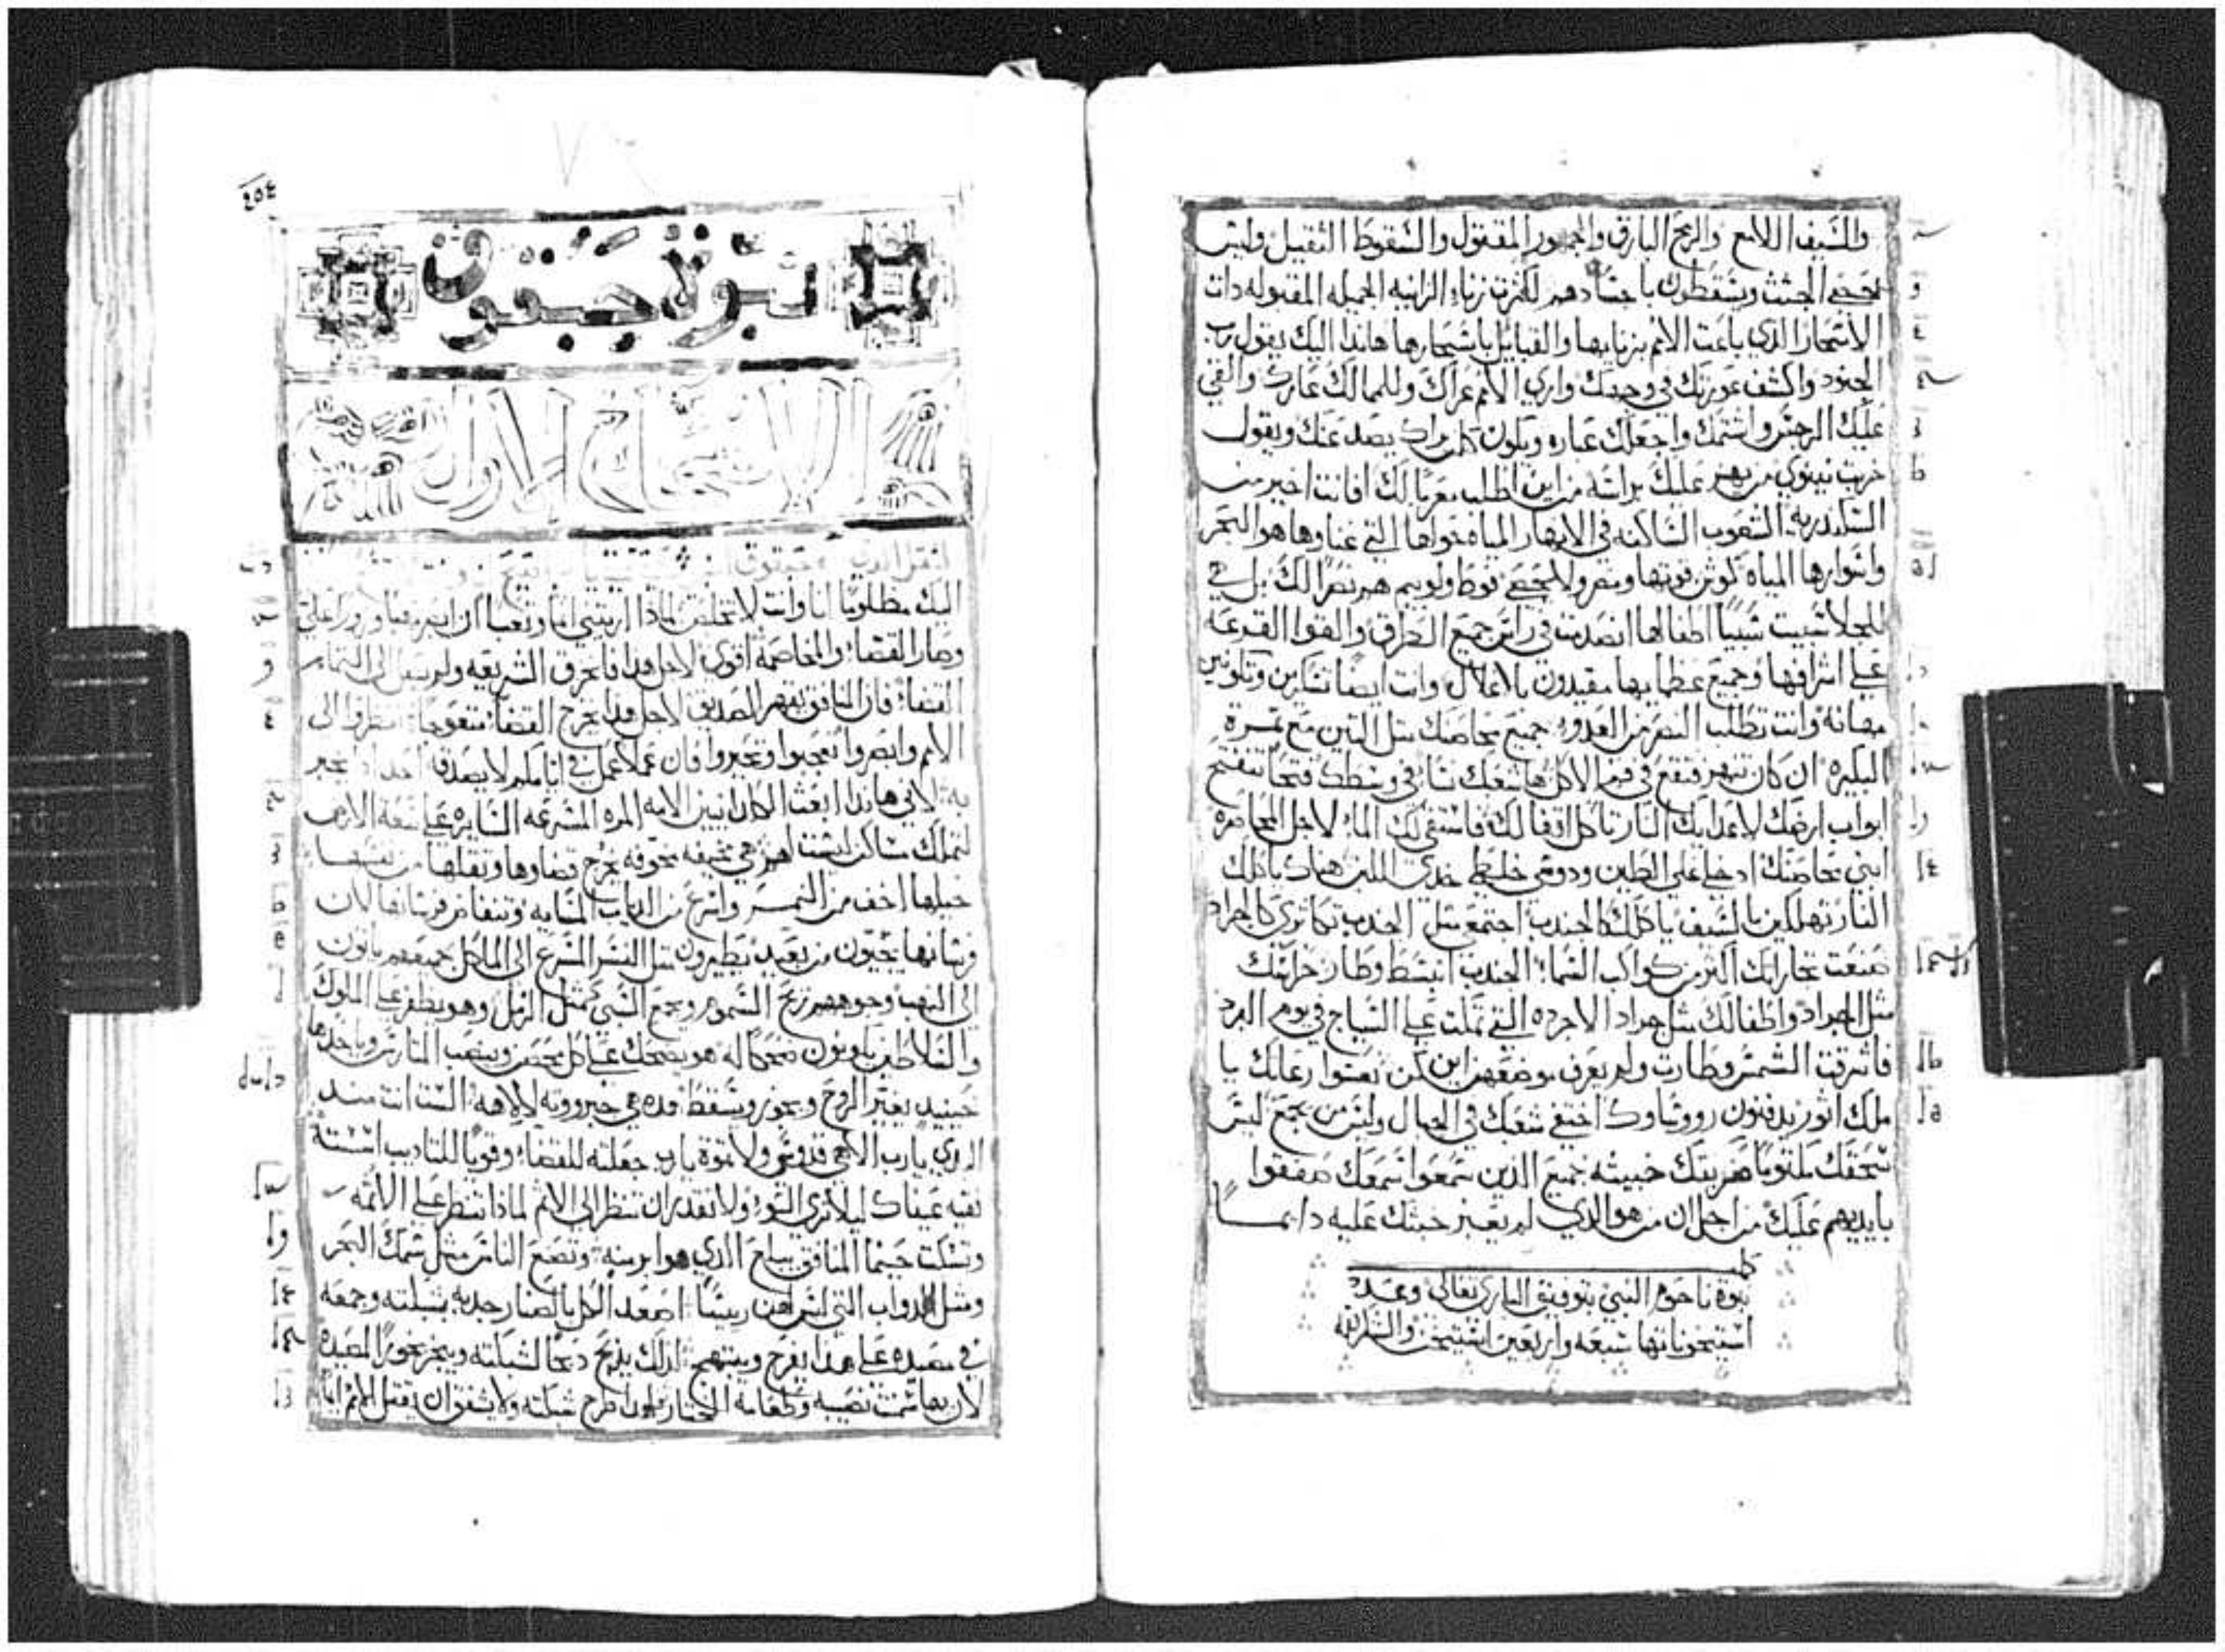 والسيف اللامع والرمح البارق والجمهور المقتول والسقوط الثقيل وليس
تحصى الجثث ويسقطون باجسادهم لكثرت زناء الزانيه الجميله المقبوله دات
الاسحار الدي باعت الامم بزناها والقبايل باسحارها هاندا اليك يقول رب
الجنود واكشف عورتك في وجهك واري الامم عراك وللممالك عارك والقي
عليك الرجس واشتمك واجعلك عباره ويكون كل من راك يصد عنك ويقول
خربت نينوي من يهز عليك براسه من اين اطلب معزيا لك افانت اخير من
السكندريه الشعوب الساكنه في الانهار المياه حواها التي غناوها هو البحر
واسوارها المياه كوش قوتها ومصر ولا تحصى فوط ولوبيم هم نصرا لك بل هي
للجلا سبيت سبيا اطفالها انصدمت في راس جميع الطرق والقوا القرعه
علي اشرافها وجميع عظمايها مقيدون بالاغلال وانت ايضا تسكرين وتكونين
مهانه وانت تطلب النصر من العدو جميع محاصنك مثل التين مع تمرة
البكيره ان كان تنهز فتقع في فم الاكل ها شعبك نسا في وسطك فتحا تنفتح
ابواب ارضك لاعدايك النار تاكل اقفالك فاستقي لك الما لاجل المحاصره
ابني محاصنك ادخلي علي الطين ودوسي خليطي خدي اللبن هناك ياكلك
النار تهلكين بالسيف ياكلك كالجندب اجتمع مثل الجندب تكاتري كالجراد
صنعت تجاراتك اكثر من كواكب السما الجندب انبسط وطار حراسك
مثل الجراد واطفالك مثل جراد الاجرده التي تملت علي السياج في يوم البرد
فاشرقت الشمس وطارت ولم يعرف موضعهم اين كن نعسوا رعاتك يا
ملك اثور يدفنون رووساوك اختفي شعبك في الجبال وليس من يجمع ليس
سحقك ملتويا ضربتك خبيثه جميع الدين سمعوا سمعك صفقوا
بايديهم عليك من اجل ان من هو الدي لم يعبر خبثك عليه دايما
كلمت
نبوة ناحوم النبي بتوفيق الباري تعالى وعدد
استيخوناتها سبعه واربعين استيخن والشكر لله
٤٥٤
نبوة حبقوق
الاصحاح الاول
اليك مظلوما انا وانت لا تخلص لمادا اريتني اثما وتعبا ان ابصر
وصار القضاء والمخاصمه اقوي لاجل هدا فانخرق الشريعه ولم يصل الي التمام
القضاء فان المنافق يقهر الصديق لاجل هدا يخرج القضا متعوجا انظروا الى
الامم وابصروا تعجبوا وتحيروا فان عملا عمل في ايامكم لا يصدقه احد ادا يخبر
به لاني هاندا ابعث الكلدانيين الامه المره المسرعه السايره علي سعة الارض
لتملك مساكن ليست لهم هي مخيفه مخوفه يخرج قضاوها وثقلها من نفسها
خيلها اخف من النمر واسرع من الدياب المسايه وتنفاض فرسانها لان
فرسانها يجيون من بعيد يطيرون مثل النسر المسرع الى الماكل جميعهم ياتون
الى النهب وجوههم ريح السموم ويجمع السبي كمثل الرمل وهو يظفر علي الملوك
والسلاطين ياونون ضحكا له هو يضحك علي كل حصن وينصب المتاريس وياخدها
حينيد يغير الروح ويجوز ويسقط هده هي جبروته لالاهه الست انت مند
الدي يارب الاهي قدوسي ولا نموة يارب جعلته للقضا وقويا للتاديب اسسته
نقيه عيناك ليلا تري السوء ولا تقدر ان تنظر الى الاثم لمادا تنظر علي الاثمه
وتسكت حينما المنافق يبلع الدي هو ابر منه وتصنع الناس مثل سمك البحر
ومثل الدواب التي ليس لهن ريسا اصعد الكل بالصنار جدبه بشبكته وجمعه
في مصيده علي هدا يفرح ويبتهج لدلك يدبح دبحا لشبكته ويبخر بخورا لمصيده
لان بها سمنت نصيبه وطعامه المختار لدا طرح شبكته ولا يشفق ان يقتل الامم ايضا